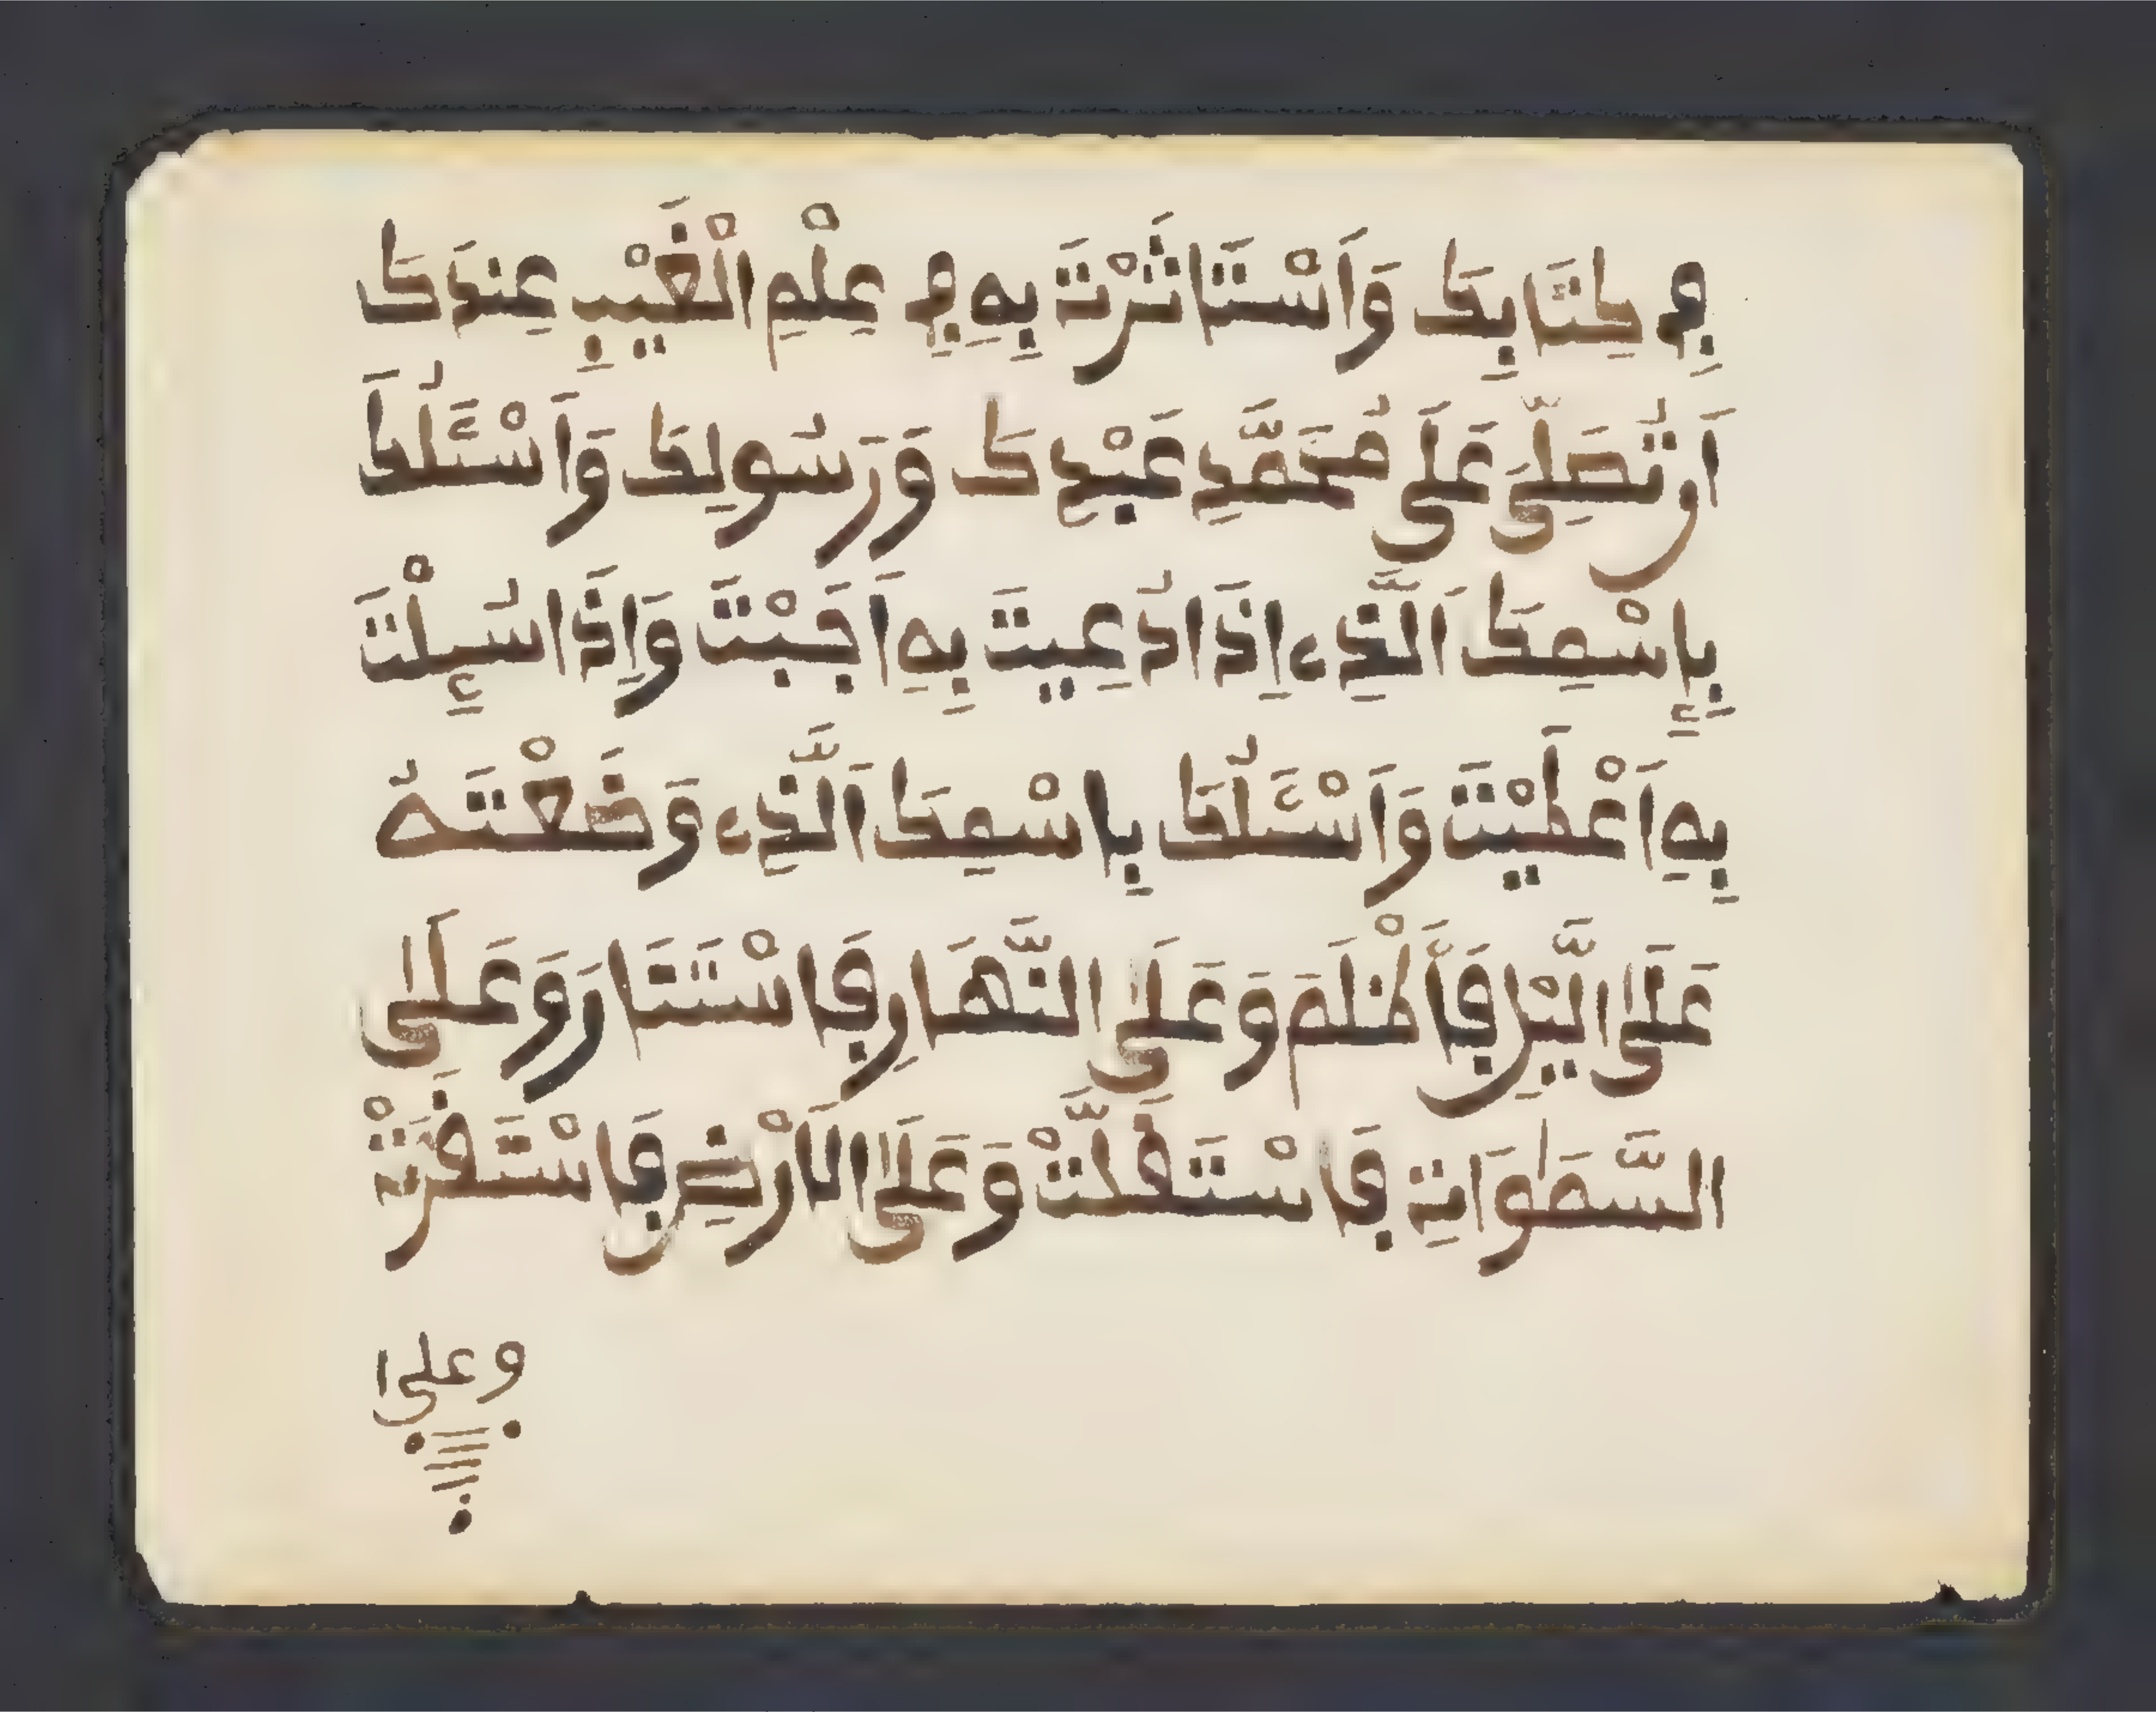 فِي كِتَابِكَ وَاَسْتَاثَرْتَ بِهِ فِي عِلْمِ الْغَيْبِ عِندَكَ
اَن تُصَلِّىَ عَلَى مُحَمَّدٍ عَبْدِكَ وَرَسُولِكَ وَاَسْـَٔلُكَ
بِإِسْمِكَ اَلَّذِى إِذَا دُعِيتَ بِهِ اَجَبْتَ وَإِذَا سُئِلْتَ
بِهِ اَعْطَيْتَ وَاَسْـَٔلُكَ بِاسْمِكَ اَلَّذِى وَضَعْتَهُ
عَلَى الَّيْلِ فَأَظْلَمَ وَعَلَى النَّهَارِ فَاسْتَنَارَ وَعَلَى
السَّمَٰوَاتِ فَاسْتَقَلَّتْ وَعَلَى الَارْضِ فَاسْتَقَرَّتْ
وعلى ا